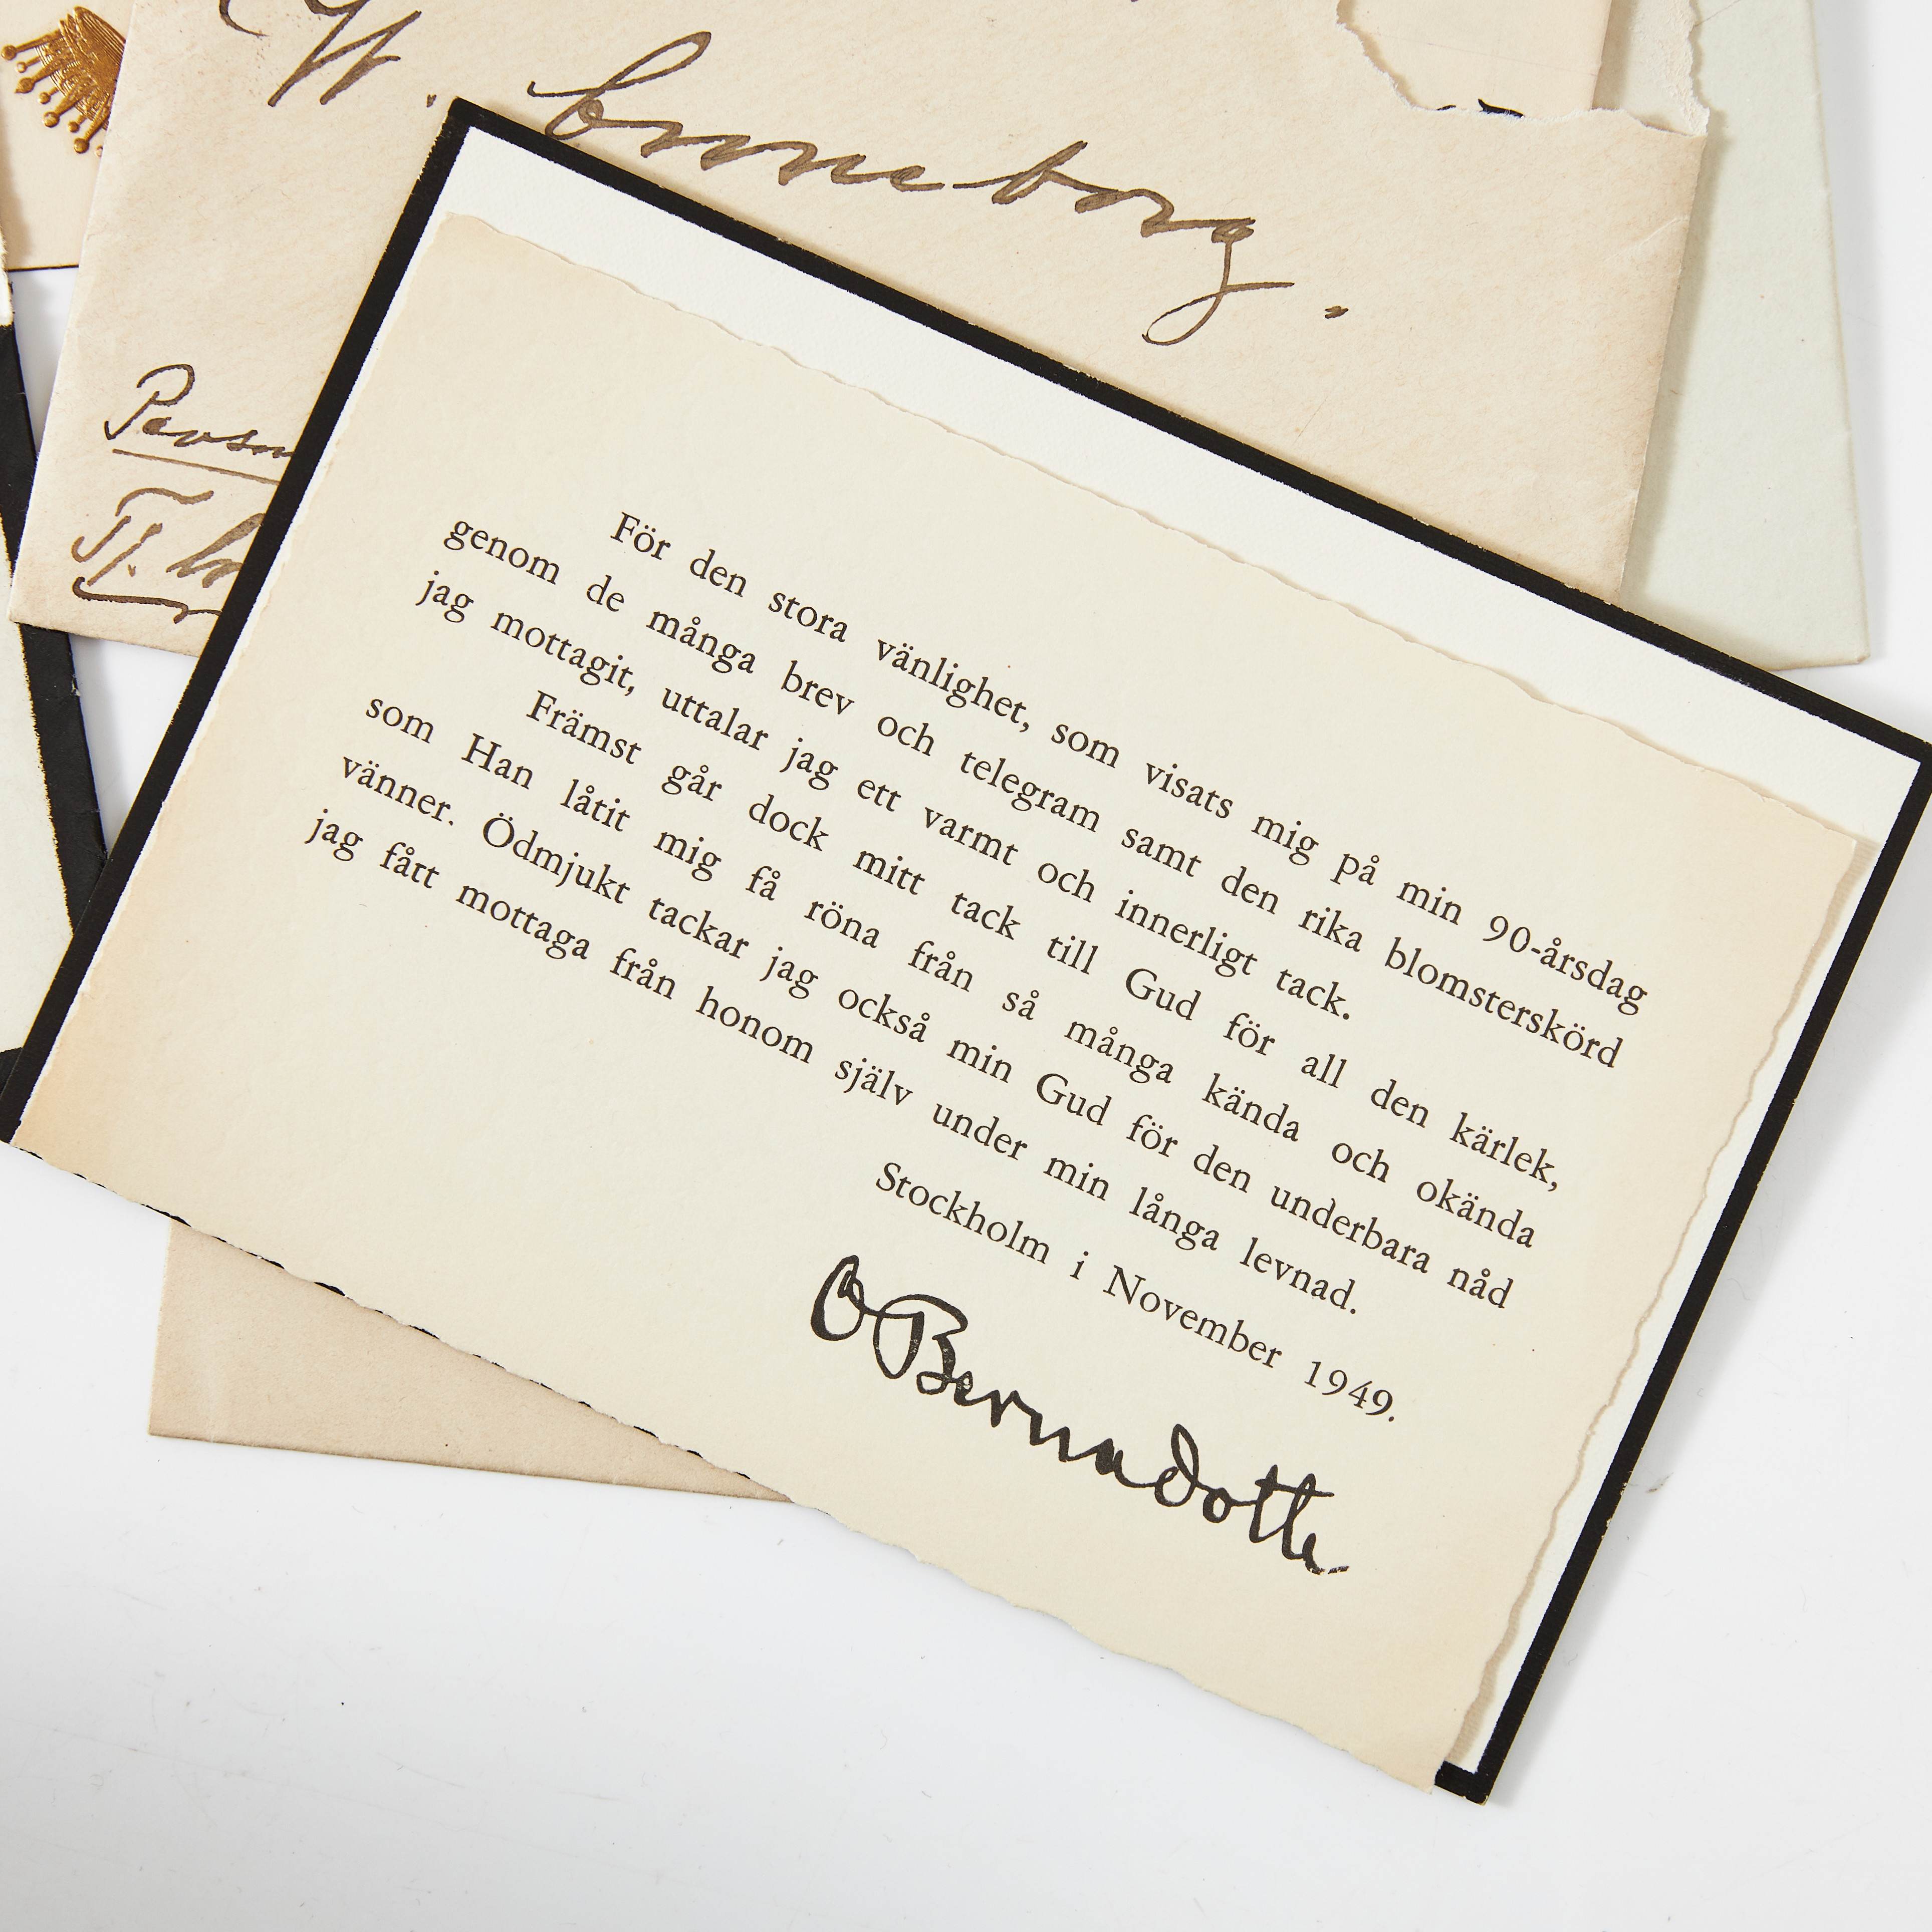 W. Crneborg.
För den stora vänlighet, som visats mig på min 90-årsdag
genom de många brev och telegram samt den rika blomsterskörd
jag mottagit, uttalar jag ett varmt och innerligt tack.
Främst går dock mitt tack till Gud för all den kärlek,
som Han låtit mig få röna från så många kända och okända
vänner. Ödmjukt tackar jag också min Gud för den underbara nåd
jag fått mottaga från honom själv under min långa levnad.
Stockholm i November 1949.
O Bernadotte